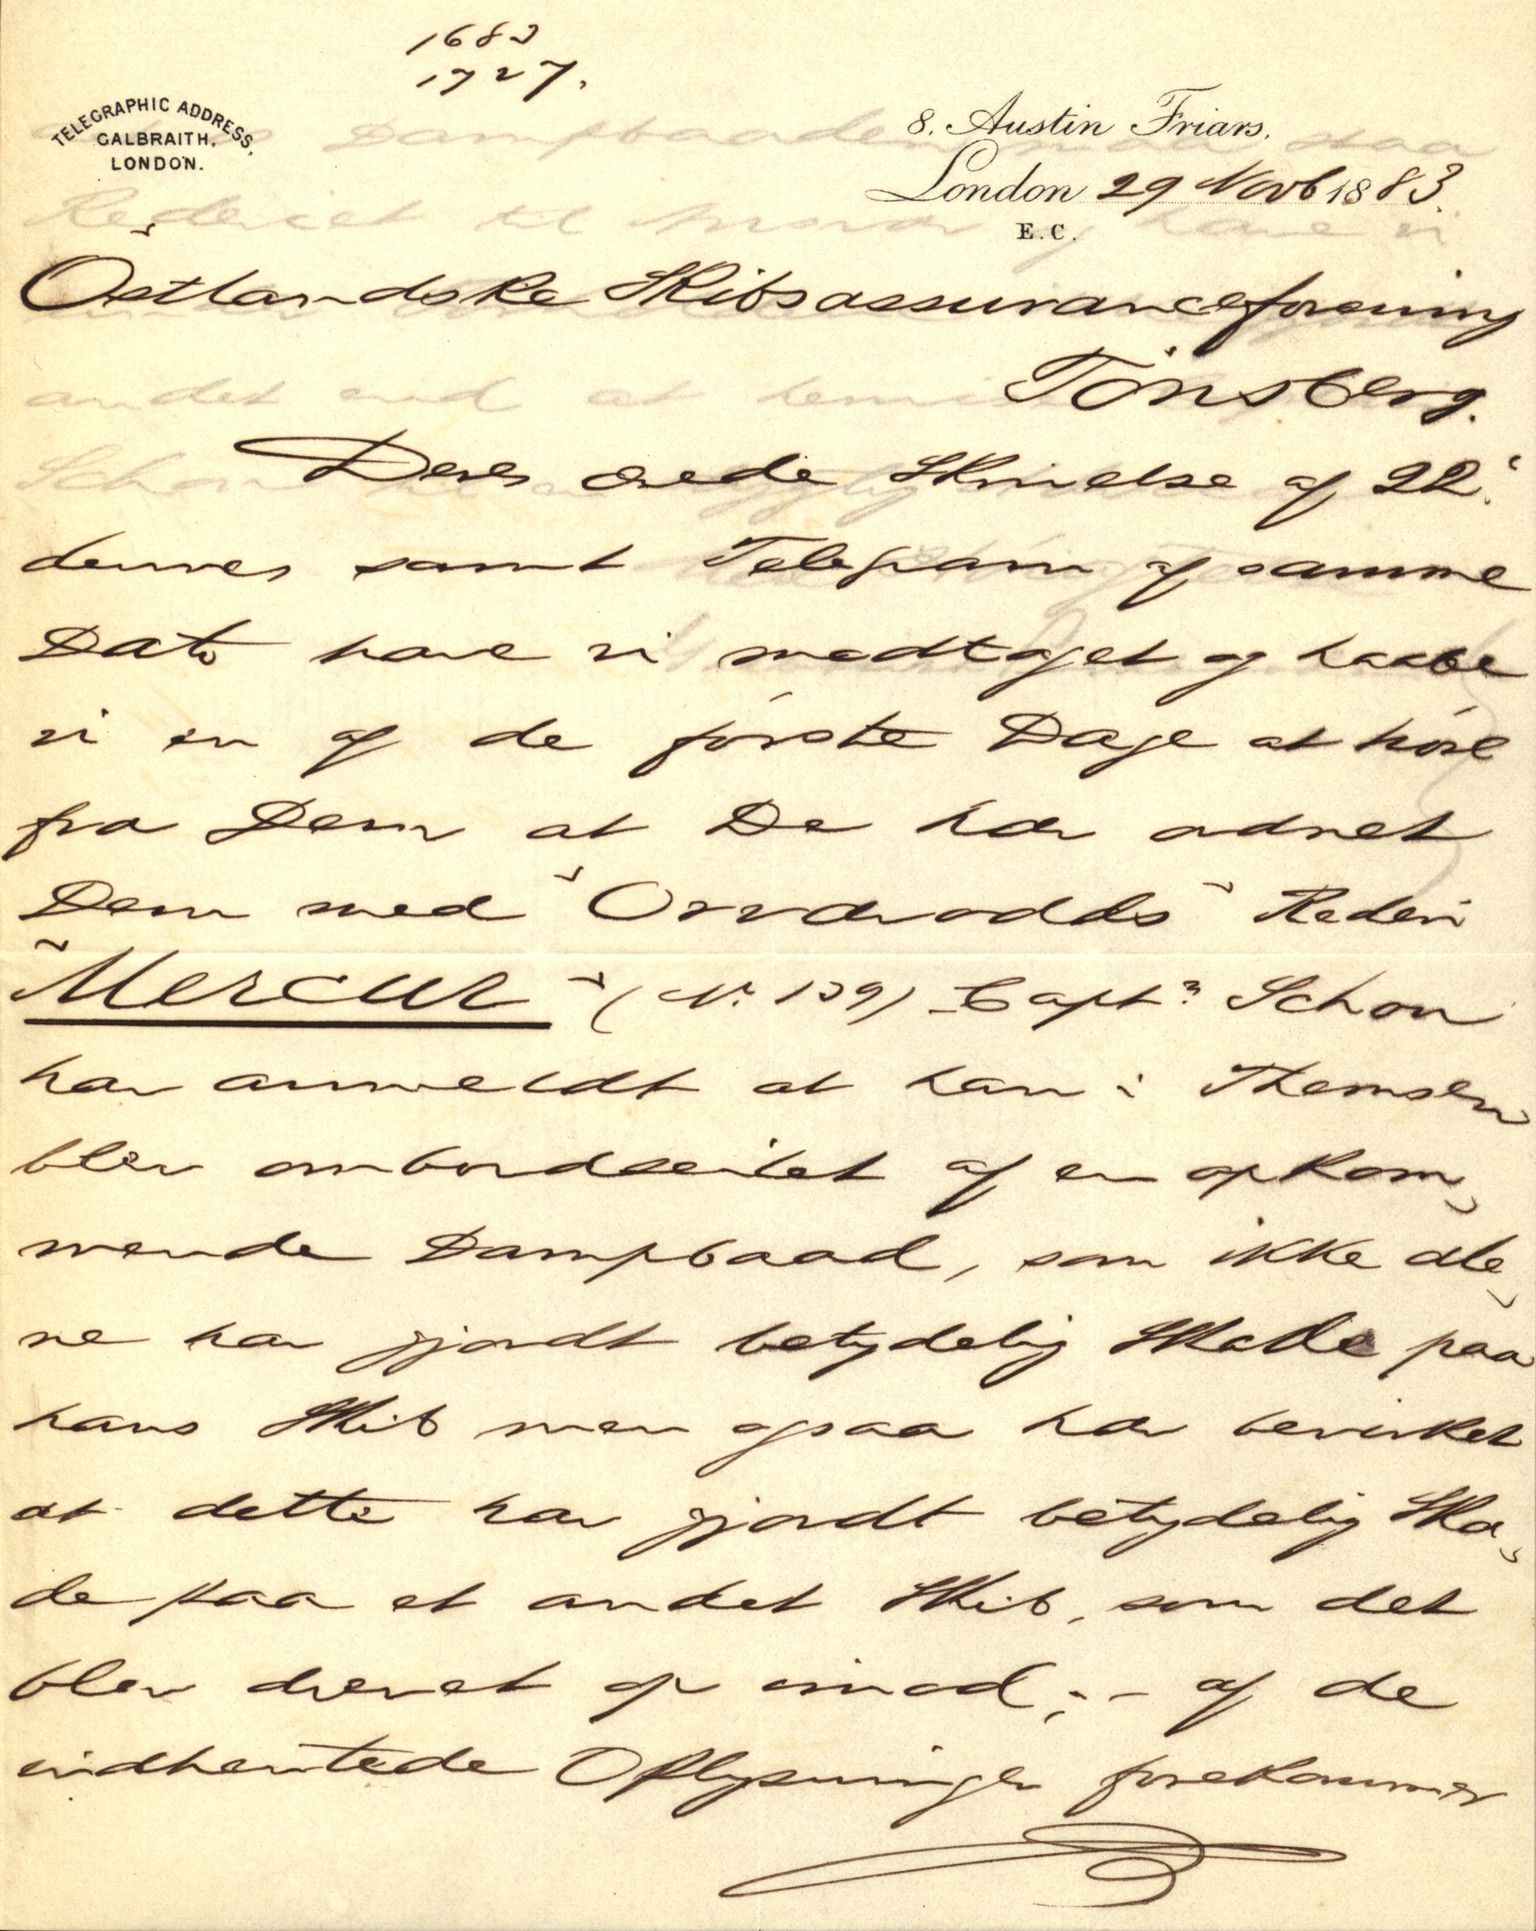 1683
1727.
TELEGRAPHIC ADDRESS,
GALBRAITH,
LONDON.
8. Austin Friars.
London 29 Novb 1883.
E.C.
Östlandske Skibsassuranceforening
Tönsberg.
Deres ærede Skrivelse af 22'
dennes samt Telegram af samme
Dato have vi modtaget og haabe
vi en af de förste Dage at höre
fra Dem at De har ordnet
Dem med "Orvarodds" Rederi
"Mercur" (N. 139) Captn Schon
har anmeldt at han i Themsen
blev ombordseilet af en opkom,
mende Dampbaad, som ikke ale,
ne har gjordt betydelig Skade paa
hans Skib men ogsaa har bevirket
at dette har gjordt betydelig Ska,
de paa et andet Skib, som det
blev drevet op imod; - af de
indhentede Oplysninger forekommer